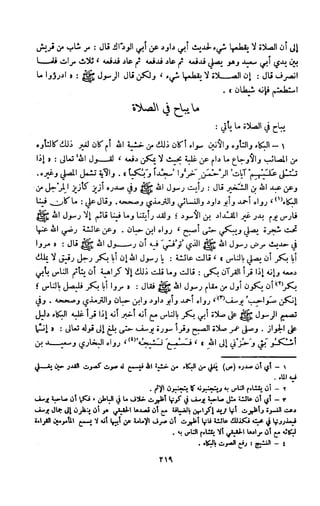 إلى أن الصلاة لا يقطعها شيء لحديث أبي داود عن أبي الوداك قال : مر شاب من قريش
بين يدي أبي سعيد وهو يصلي فدفعه ثم عاد فدفعه ثم عاد فدفعه ، ثلاث مرات فلمـا
انصرف قال : إن الصـلاة لا يقطعها شيء ، ولكن قال الرسول ﷺ : « ادرؤوا ما
استطعتم فإنه شيطان » .
ما يباح في الصلاة
يباح في الصلاة ما يأتي :
١ – البكاء والتأوه والأنين سواء أكان ذلك من خشية الله أم كان لغير ذلك كالتأوه
من المصائب والأوجاع ما دام عن غلبة بحيث لا يمكن دفعه ، لقـول الله تعالى : « إذا
تتلى عليهم آيات الرحمن خروا سجداً وبكياً » . والآية تشمل المصلي وغيره .
وعن عبد الله بن الشخير قال : رأيت رسول الله ﷺ وفي صدره أزيز كأزيز المرجل من
البكاء(١) ، رواه أحمد وأبو داود والنسائي والترمذي وصححه . وقال علي : ما كان فينا
فارس يوم بدر غير المقداد بن الأسود ؛ ولقد رأيتنا وما فينا قائم إلا رسول الله ﷺ
تحت شجرة يصلي ويبكي حتى أصبح ، رواه ابن حبان . وعن عائشة رضي الله عنها
في حديث مرض رسول الله ﷺ الذي توفي فيه أن رسـول الله ﷺ قال : « مروا
أبا بكر أن يصلي بالناس » ، قالت عائشة : يا رسول الله إن أبا بكر رجل رقيق لا يملك
دمعه وإنه إذا قرأ القرآن بكى : قالت وما قلت ذلك إلا كراهية أن يتأثم الناس بأبي
بكر(٢) أن يكون أول من مقام رسول الله ﷺ فقال : « مروا أبا بكر فليصل بالناس ؛
إنكن صواحب يوسف(٣) » رواه أحمد وأبو داود وابن حبان والترمذي وصححه . وفي
تصميم الرسول ﷺ على صلاة أبي بكر بالناس مع أنه أخبر أنه إذا قرأ غلبه البكاء دليل
على الجواز . وصلى عمر صلاة الصبح وقرأ سورة يوسف حتى بلغ إلى قوله تعالى : « إنما
أشكو بثي وحزني إلى الله » ، فسمع نشيجه(٤) ، رواه البخاري وسعيـد بن
١ – أي أن صدره (ص) يغلي من البكاء من خشية الله فيسمع له صوت كصوت القدر حين يغلي
فيه الماء .
٢ – أي أن يتشاءم الناس به ويتجنبونه كما يتجنبون الإثم .
٣ – أي أن عائشة مثل صاحبة يوسف في كونها أظهرت خلاف ما في الباطن ، فكما أن صاحبة يوسف
دعت النسوة وأظهرت أنها تريد إكرامهن بالضيافة مع أن قصدها الحقيقي هو أن ينظرن إلى جمال يوسف
فيعذرنها في حبه فكذلك عائشة فإنها أظهرت أن صرف الإمامة عن أبيها أنه لا يسمع المأمومين القراءة
لبكائه مع أن مرادها الحقيقي ألا يتشاءم الناس به .
٤ – النشيج : رفع الصوت بالبكاء .
٢١٩